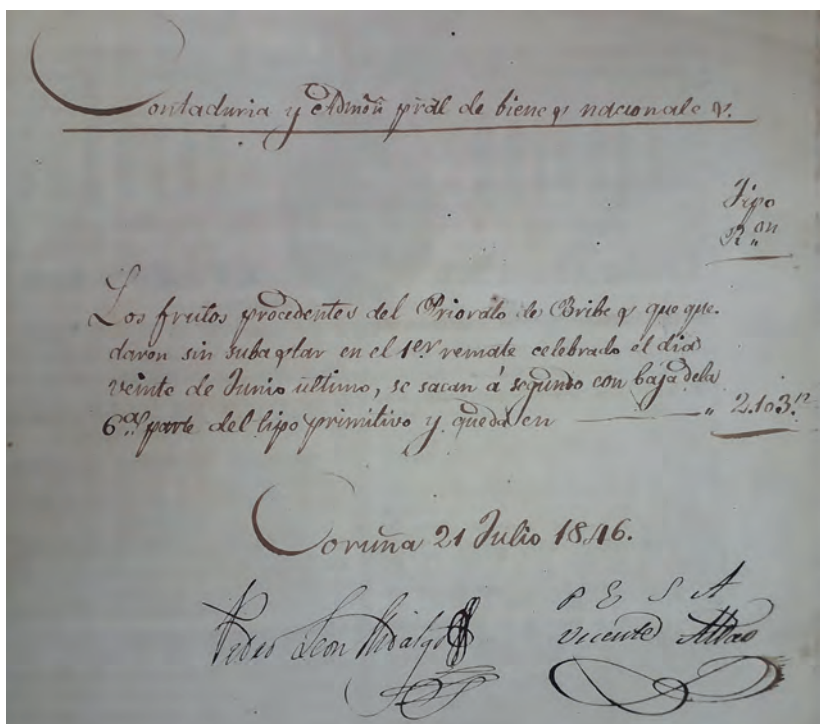 Contaduria y Admon pral de bienes nacionales.
Tipo
R.on
Los frutos procedentes del Priorato de Bribes que que-
daron sin subastar en el 1er remate celebrado el dia
veinte de Junio último, se sacan á segundo con baja dela
6.a parte del tipo primitivo y queda en " 2.103.12
Coruña 21 Julio 1846.
P E S A
Pedro Leon Hidalgo Vicente